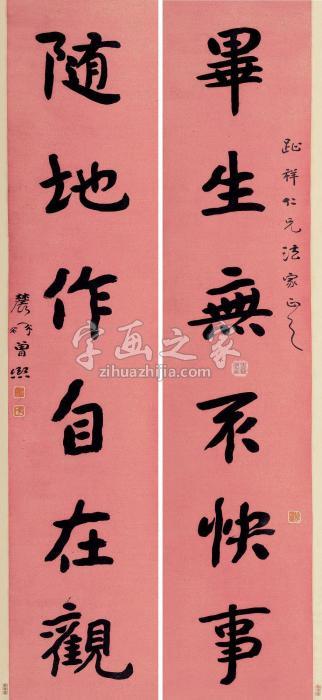 畢生無不快事
趾祥仁兄法家正之
随地作自在觀
農髯曾熙
字画之家
zihuazhijia.com